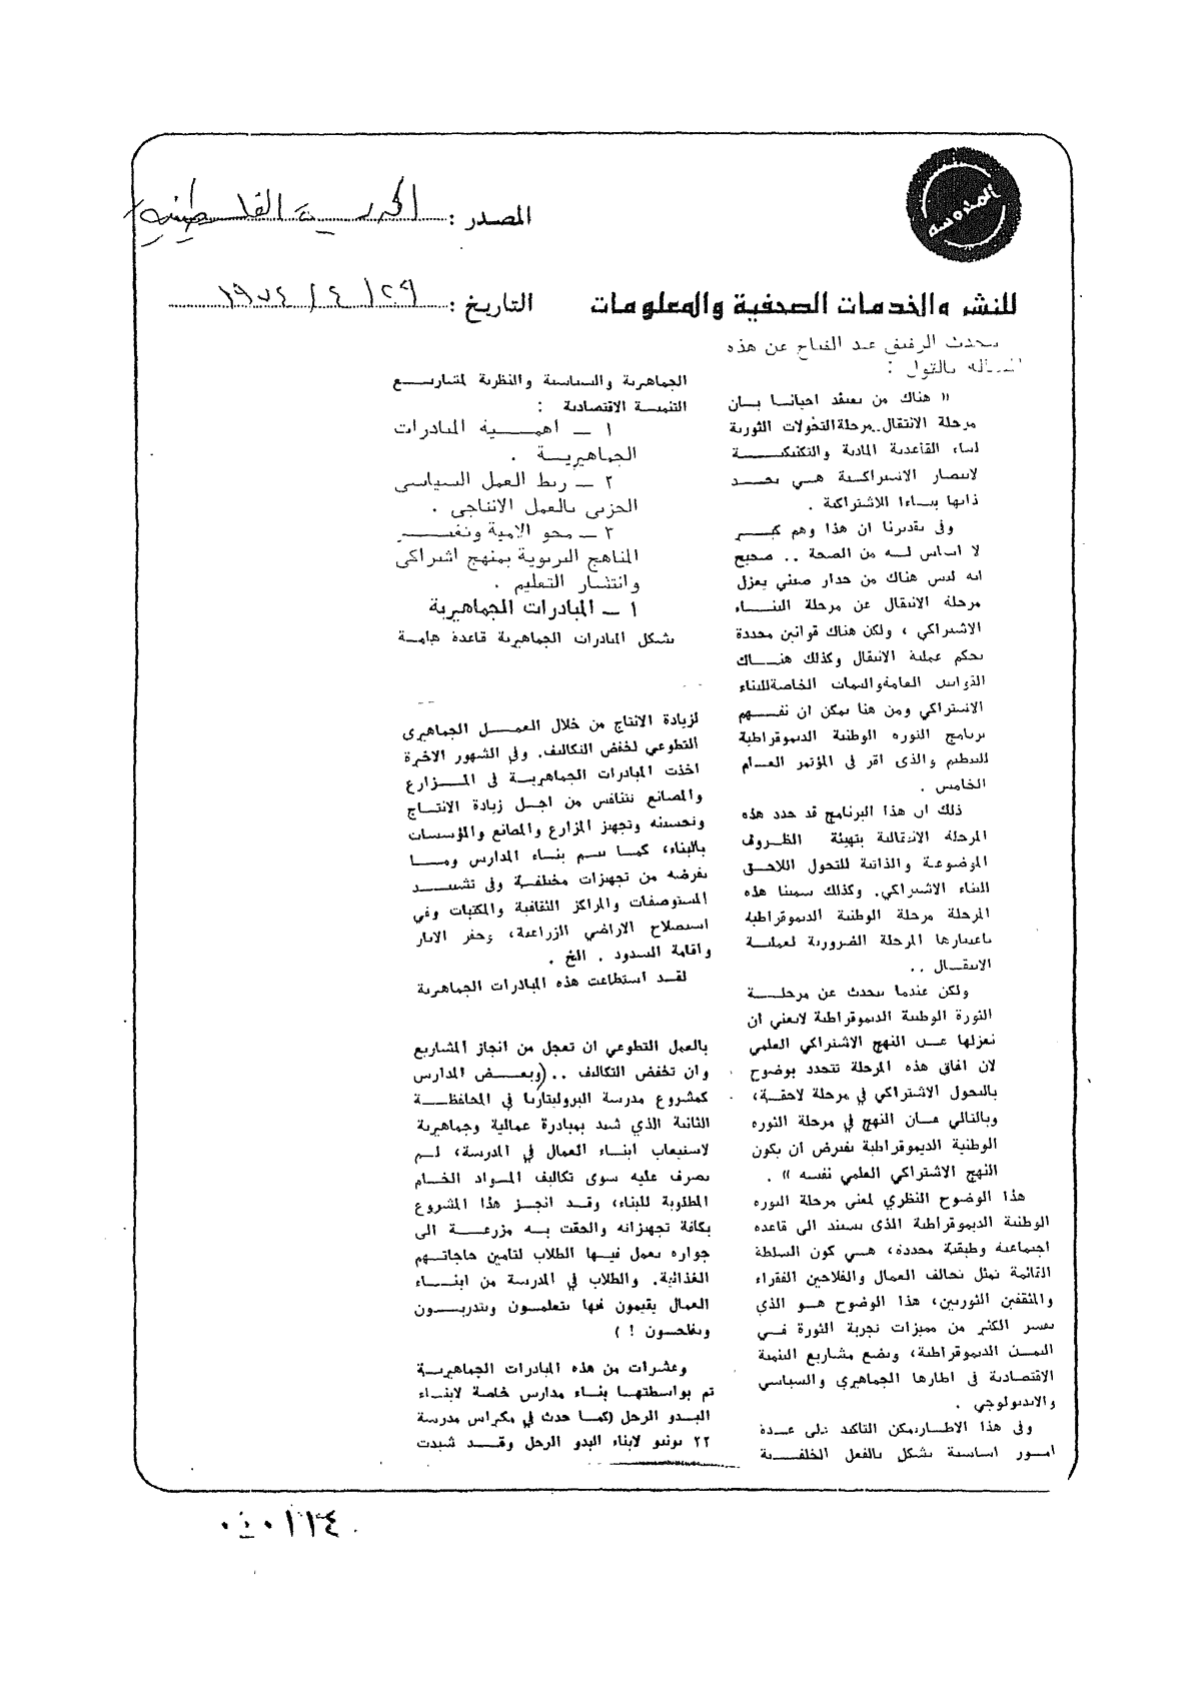 المدوسه
المصدر : الحرية الفلسطينية
للنشر والخدمات الصحفية والمعلومات
التاريخ : ٢٩ / ٤ / ١٩٧٤
يتحدث الرفيق عبد الفتاح عن هذه
المسألة بالقول :
(( هناك من يعتقد احيانا بان
مرحلة الانتقال..مرحلة التحولات الثورية
لبناء القاعدية المادية والتكنيكية
لانتصار الاشتراكية هي بحد
ذاتها بناءا للاشتراكية .
وفي تقديرنا ان هذا وهم كبير
لا اساس له من الصحة .. صحيح
انه ليس هناك من جدار صيني يعزل
مرحلة الانتقال عن مرحلة البناء
الاشتراكي ، ولكن هناك قوانين محددة
تحكم عملية الانتقال وكذلك هناك
القوانين العامة والسمات الخاصة للبناء
الاشتراكي ومن هنا يمكن ان نفهم
برنامج الثورة الوطنية الديموقراطية
للتنظيم والذي اقر في المؤتمر العام
الخامس .
ذلك ان هذا البرنامج قد حدد هذه
المرحلة الانتقالية بتهيئة الظروف
الموضوعية والذاتية للتحول اللاحق
للبناء الاشتراكي. وكذلك سمينا هذه
المرحلة مرحلة الوطنية الديموقراطية
باعتبارها المرحلة الضرورية لعملية
الانتقال ..
ولكن عندما نتحدث عن مرحلة
الثورة الوطنية الديموقراطية لايعني ان
نعزلها عن النهج الاشتراكي العلمي
لان افاق هذه المرحلة تتحدد بوضوح
بالتحول الاشتراكي في مرحلة لاحقة،
وبالتالي فان النهج في مرحلة الثورة
الوطنية الديموقراطية يفترض ان يكون
النهج الاشتراكي العلمي نفسه )) .
هذا الوضوح النظري لمعنى مرحلة الثورة
الوطنية الديموقراطية الذي يستند الى قاعدة
اجتماعية وطبقية محددة، هي كون السلطة
القائمة تمثل تحالف العمال والفلاحين الفقراء
والمثقفين الثوريين، هذا الوضوح هو الذي
يفسر الكثير من مميزات تجربة الثورة في
اليمن الديموقراطية، ويضع مشاريع التنمية
الاقتصادية في اطارها الجماهيري والسياسي
والايديولوجي .
وفي هذا الاطار يمكن التاكيد على عدة
امور اساسية تشكل بالفعل الخلفية
الجماهيرية والسياسية والنظرية لمشاريع
التنمية الاقتصادية :
١ ـ اهمية المبادرات
الجماهيرية .
٢ ـ ربط العمل السياسي
الحزبي بالعمل الانتاجي .
٣ ـ محو الامية وتغيير
المناهج التربوية بمنهج اشتراكي
وانتشار التعليم .
١ ـ المبادرات الجماهيرية
تشكل المبادرات الجماهيرية قاعدة هامة
لزيادة الانتاج من خلال العمل الجماهيري
التطوعي لخفض التكاليف. وفي الشهور الاخيرة
اخذت المبادرات الجماهيرية في المزارع
والمصانع تتنافس من اجل زيادة الانتاج
وتحسينه وتجهيز المزارع والمصانع والمؤسسات
بالبناء، كما يتم بناء المدارس وما
تفرضه من تجهيزات مختلفة وفي تشييد
المستوصفات والمراكز الثقافية والمكتبات وفي
استصلاح الاراضي الزراعية، وحفر الابار
واقامة السدود . الخ .
لقد استطاعت هذه المبادرات الجماهيرية
بالعمل التطوعي ان تعجل من انجاز المشاريع
وان تخفض التكاليف .. (وبعض المدارس
كمشروع مدرسة البروليتاريا في المحافظة
الثانية الذي شيد بمبادرة عمالية وجماهيرية
لاستيعاب ابناء العمال في المدرسة، لم
يصرف عليه سوى تكاليف المواد الخام
المطلوبة للبناء، وقد انجز هذا المشروع
بكافة تجهيزاته والحقت به مزرعة الى
جواره يعمل فيها الطلاب لتامين حاجاتهم
الغذائية. والطلاب في المدرسة من ابناء
العمال يقيمون فيها يتعلمون ويتدربون
ويفلحون ! )
وعشرات من هذه المبادرات الجماهيرية
تم بواسطتها بناء مدارس خاصة لابناء
البدو الرحل (كما حدث في مكيراس مدرسة
٢٢ يونيو لابناء البدو الرحل وقد شيدت